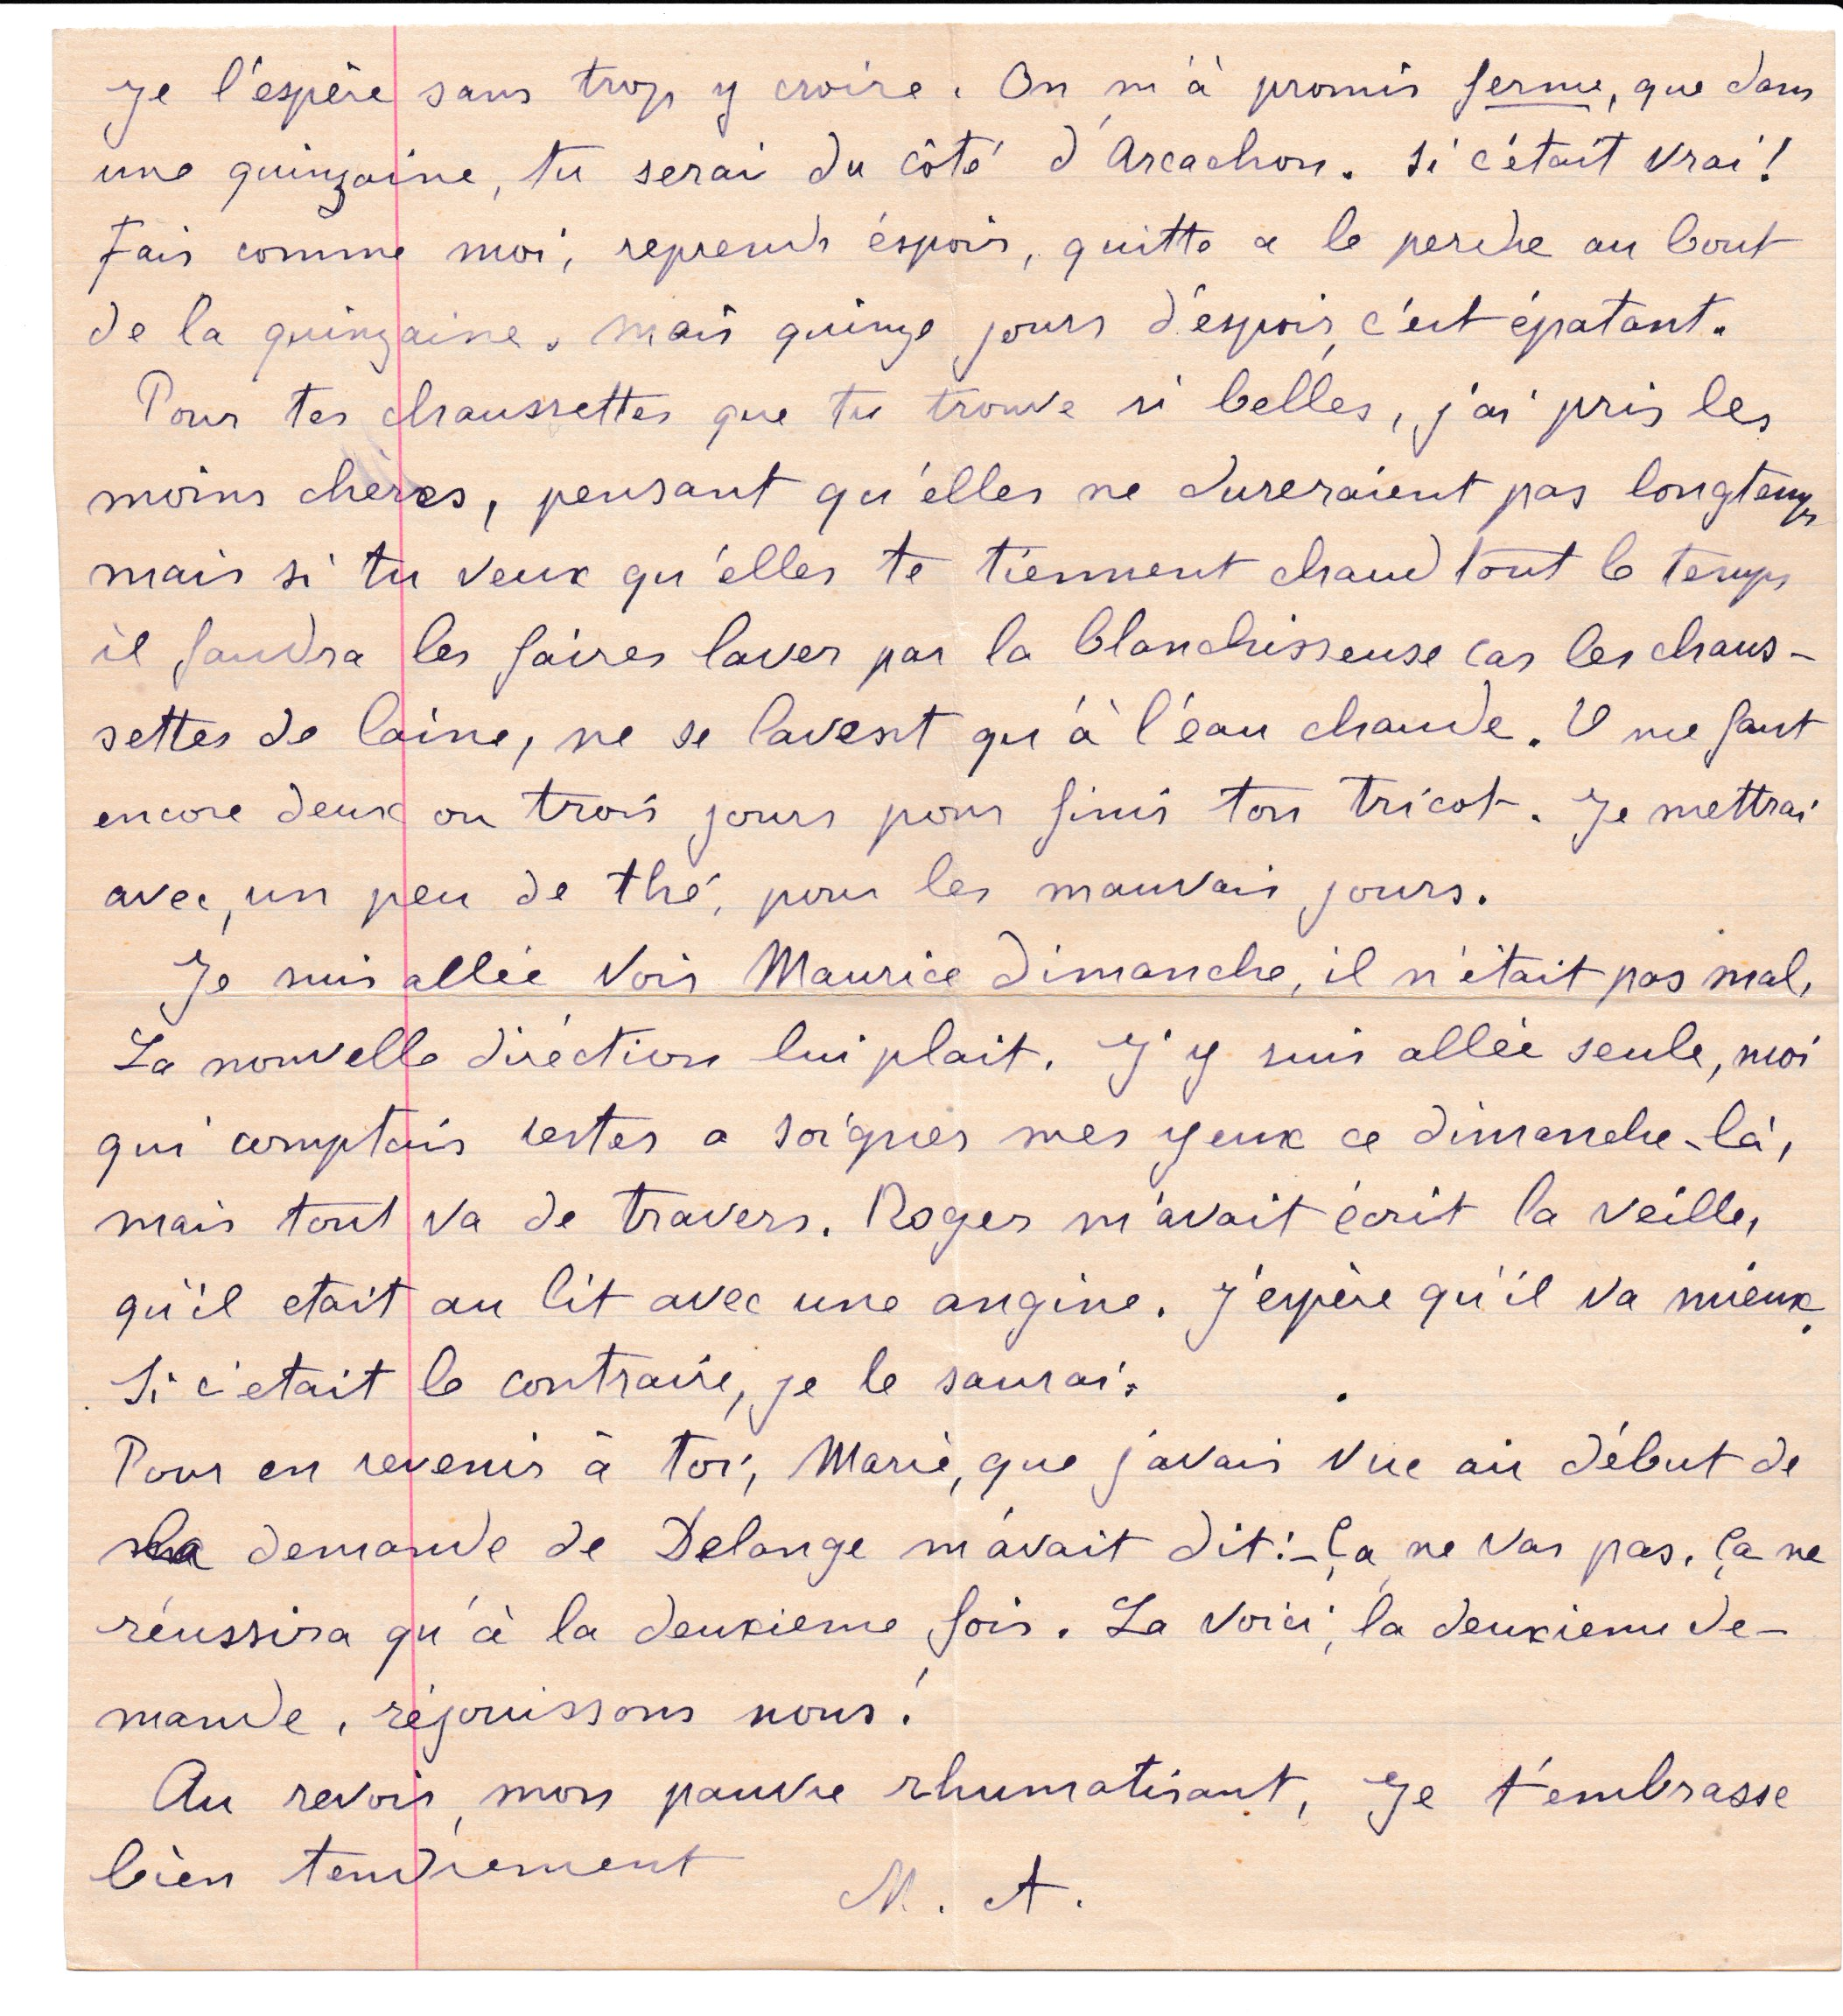 Je l'espère sans trop y croire. On m'à promis ferme, que dans
une quinzaine, tu serai du côté d'Arcachon. Si c'était vrai!
Fais comme moi, reprends éspoir, quitte a le perdre au bout
de la quinzaine. Mais quinze jours d'éspoir, c'est épatant.
Pour tes chaussettes que tu trouve si belles, j'ai pris les
moins chères, pensant qu'élles ne dureraient pas longtemps
mais si tu veux qu'elles te tiennent chaud tout le temps
il faudra les faires laver par la blanchisseuse car les chaus-
settes de laine, ne se lavent qu'à l'éau chaude. Il me faut
encore deux ou trois jours pour finir ton tricot. Je mettrai
avec, un peu de thé, pour les mauvais jours.
Je suis allée voir Maurice dimanche, il n'était pas mal.
La nouvelle diréction lui plait. J'y suis allée seule, moi
qui comptais rester a soigner mes yeux ce dimanche-là,
mais tout va de travers. Roger m'avait écrit la veille,
qu'il etait au lit avec une angine. J'espère qu'il va mieux.
Si c'etait le contraire, je le saurai.
Pour en revenir à toi, Marie, que j'avais vue au début de
la demande de Delange m'avait dit:-Ça ne vas pas. Ça ne
réussira qu'à la deuxieme fois. La voici, la deuxieme de-
mande, réjouissons nous!
Au revoir, mon pauvre rhumatisant, Je t'embrasse
bien tendrement
M. A.